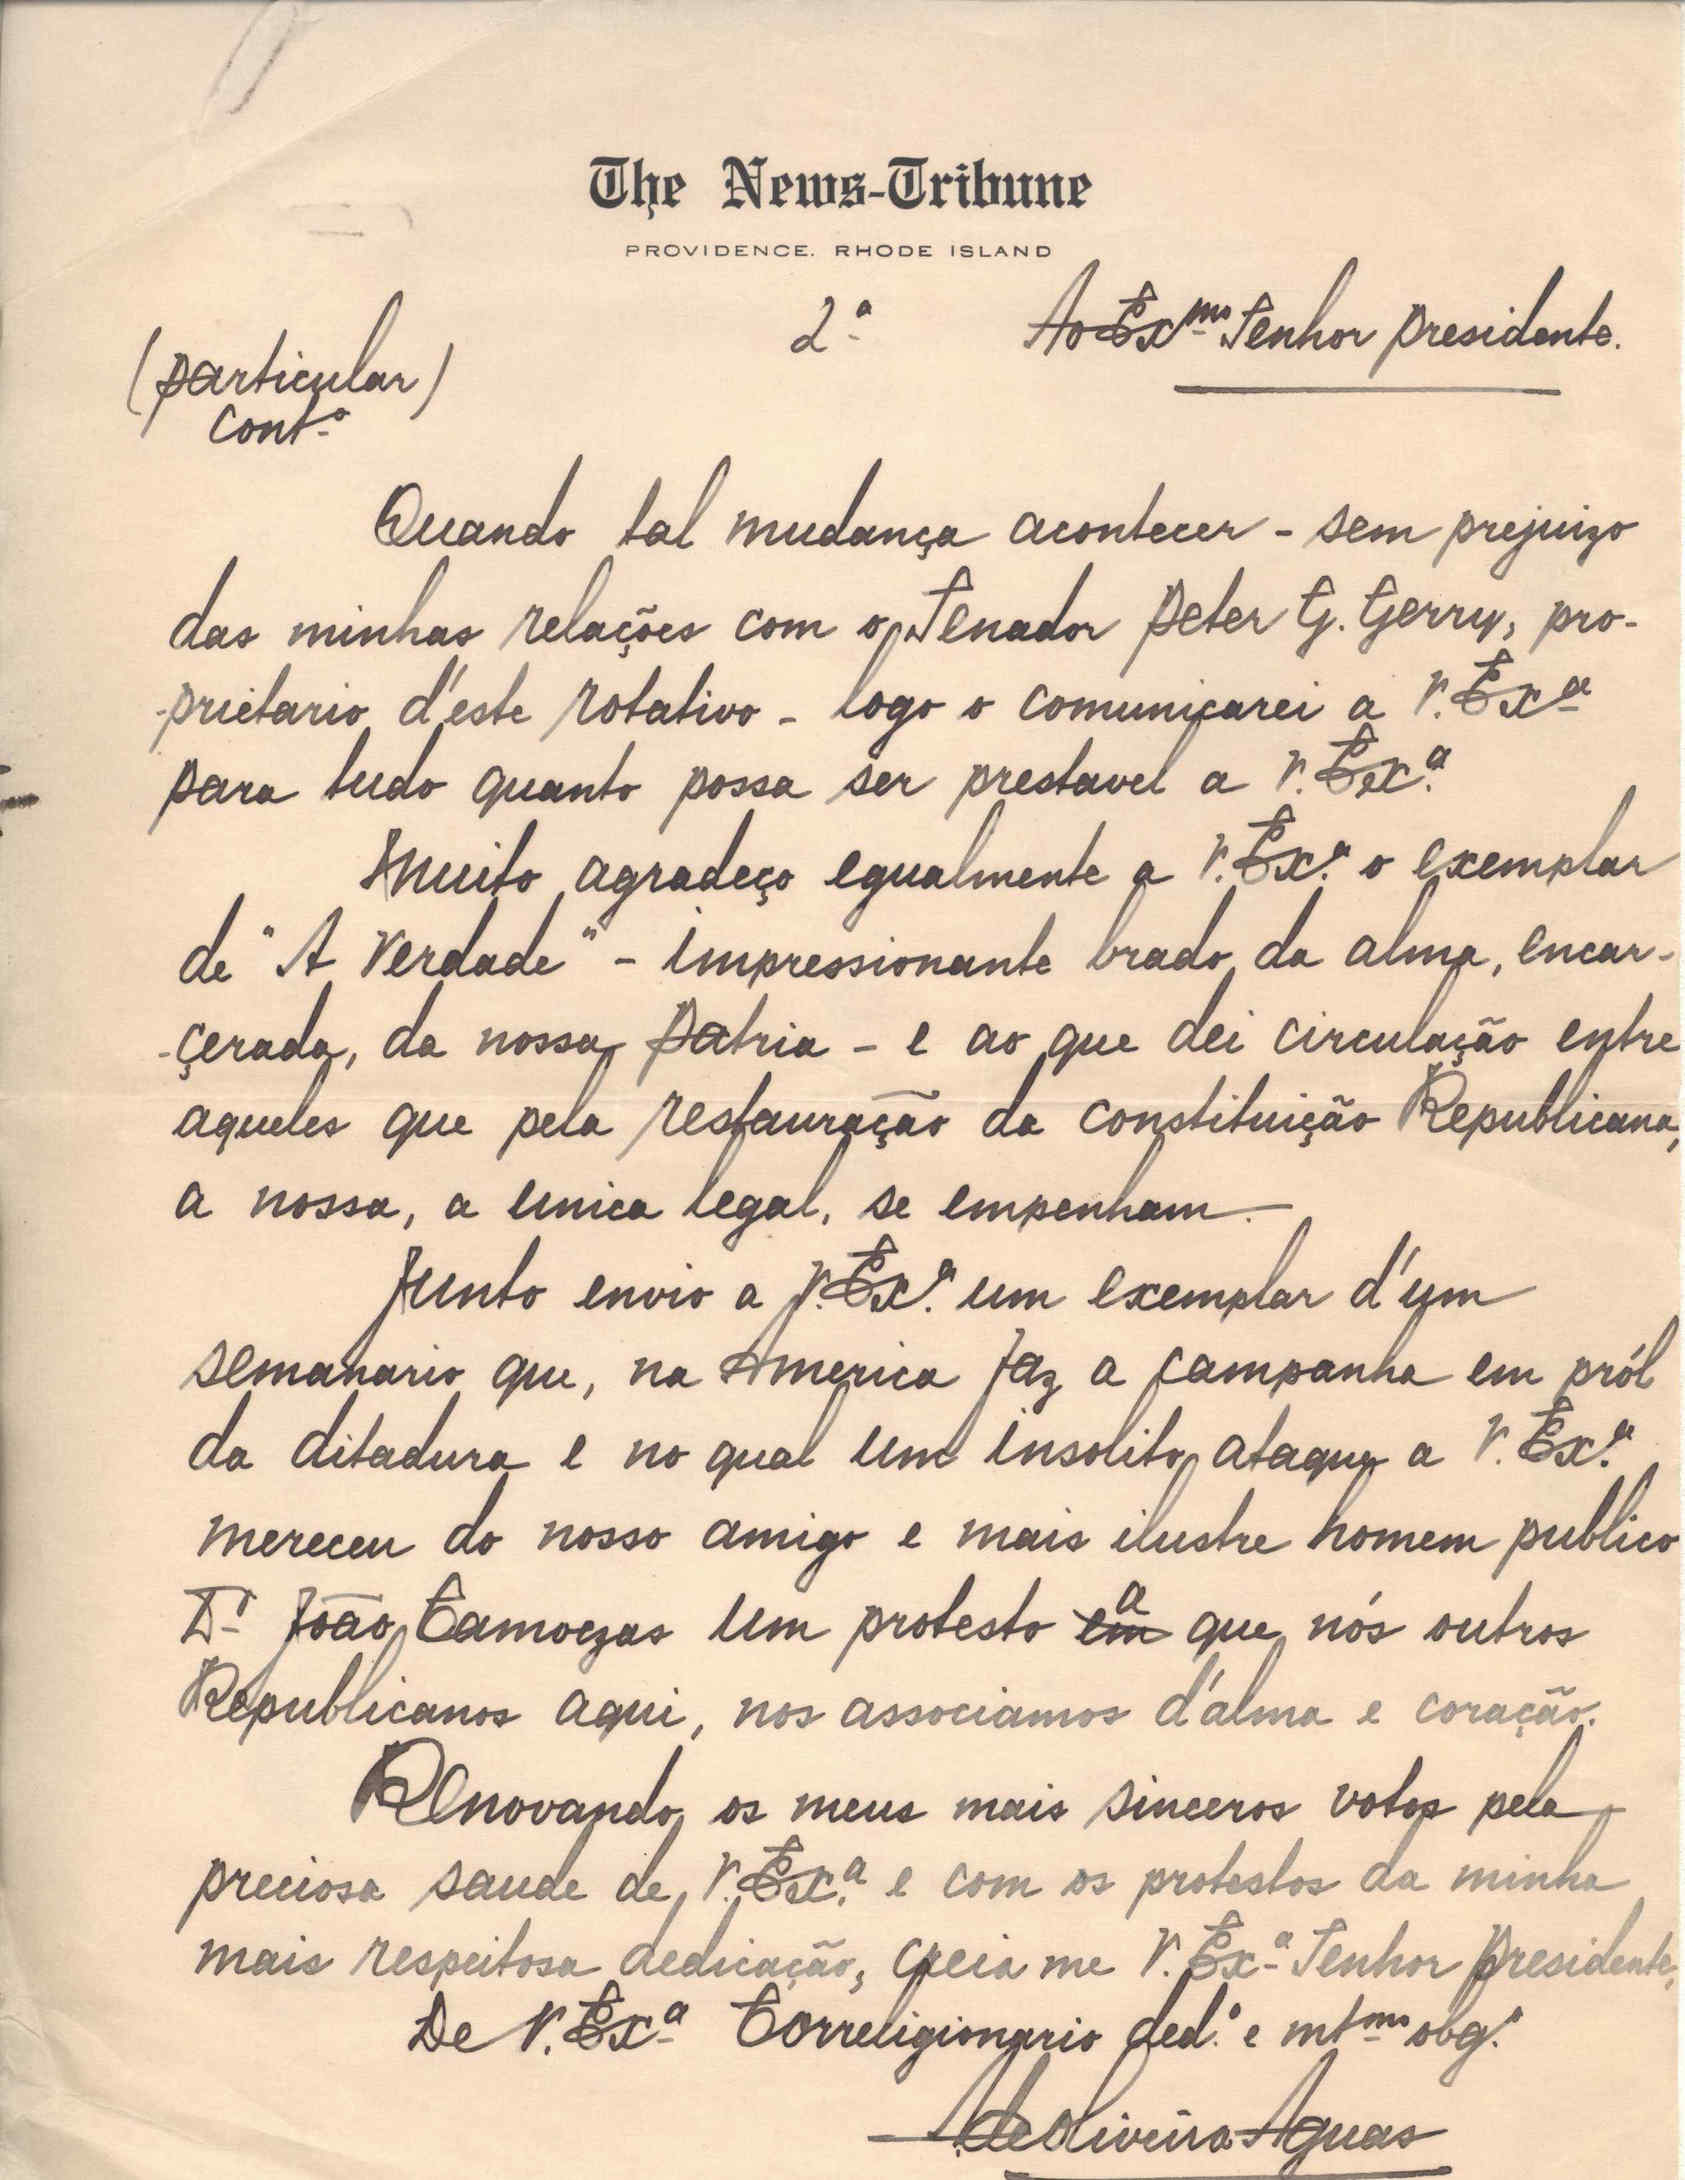 The News-Tribune
PROVIDENCE. RHODE ISLAND
2ª
Ao Exmo Senhor Presidente.
(Particular)
Contº
Quando tal mudança acontecer - sem prejuizo
das minhas relações com o Senador Peter G. Gerry, pro-
-prietario d'este rotativo - logo o comunicarei a V. Exª
para tudo quanto possa ser prestavel a V. Exª.
Muito agradeço egualmente a V. Exª. o exemplar
de "A Verdade" - impressionante brado da alma, encar-
-çerada, da nossa Patria - e ao que dei circulação entre
aqueles que pela restauração da Constituição Republicana,
a nossa, a unica legal, se empenham.
Junto envio a V. Exª. um exemplar d'um
semanario que, na America faz a campanha em pról
da ditadura e no qual um insolito ataque a V. Exª.
mereceu do nosso amigo e mais ilustre homem publico
Dr João Camoezas um protesto em a que nós outros
Republicanos aqui, nos associamos d'alma e coração.
Renovando os meus mais sinceros votos pela
preciosa saude de V. Exª. e com os protestos da minha
mais respeitosa dedicação, creia me V. Exª Senhor Presidente,
De V. Exª Correligionario ded.º e mtmo obg.º
A de Oliveira Aguas